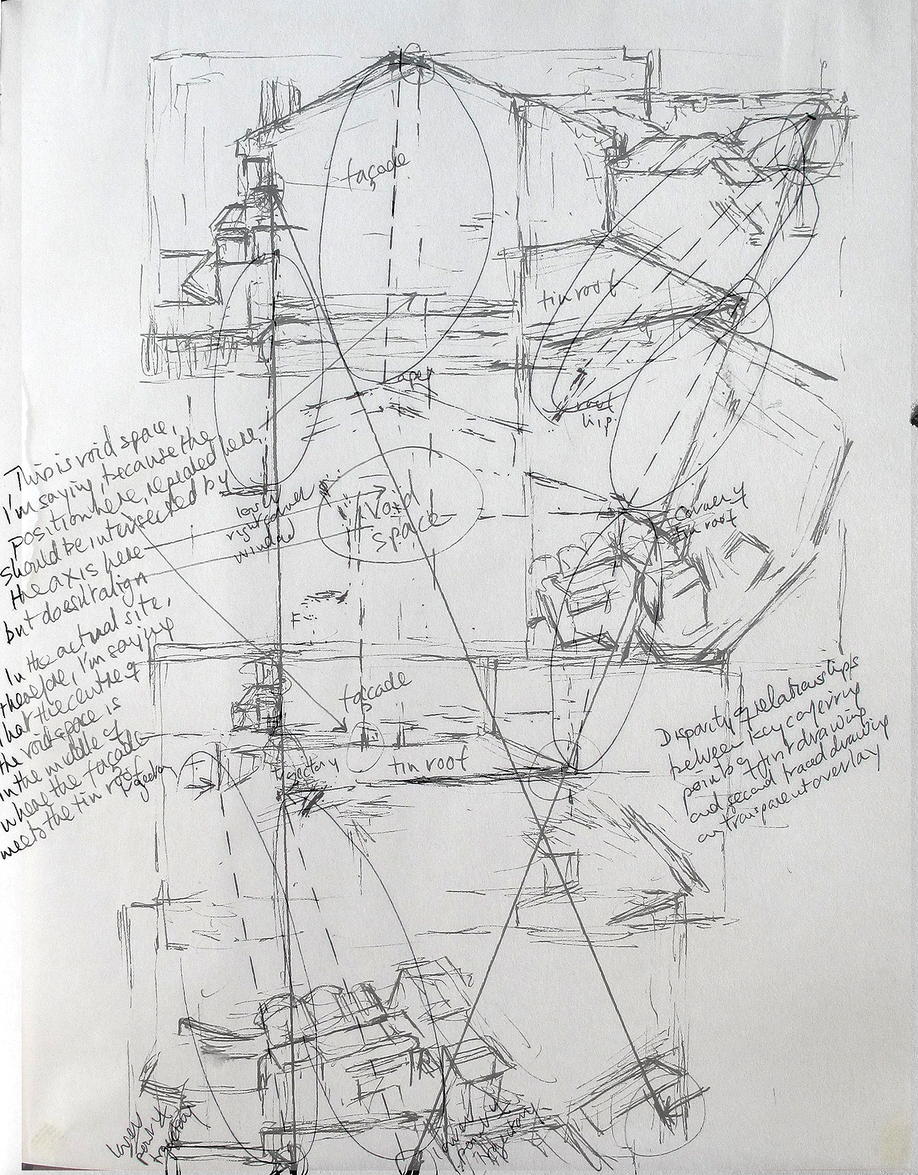 façade
tin roof
apex
roof
lip
This is void space,
I'm saying, because the
position here, repeated here,
should be intersected by
the axis here
but doesn't align
In the actual site,
therefore, I'm saying
that the centre of
the void space is
in the middle of
where the façade
meets the tin roof
lower
right corner
window
Void
space
Corner of
tin roof
F
façade
tin roof
trajectory
Disparity of relationships
between key conferring
points of first drawing
and second traced drawing
on transparent overlay
lower
point of
trajectory
point
trajectory